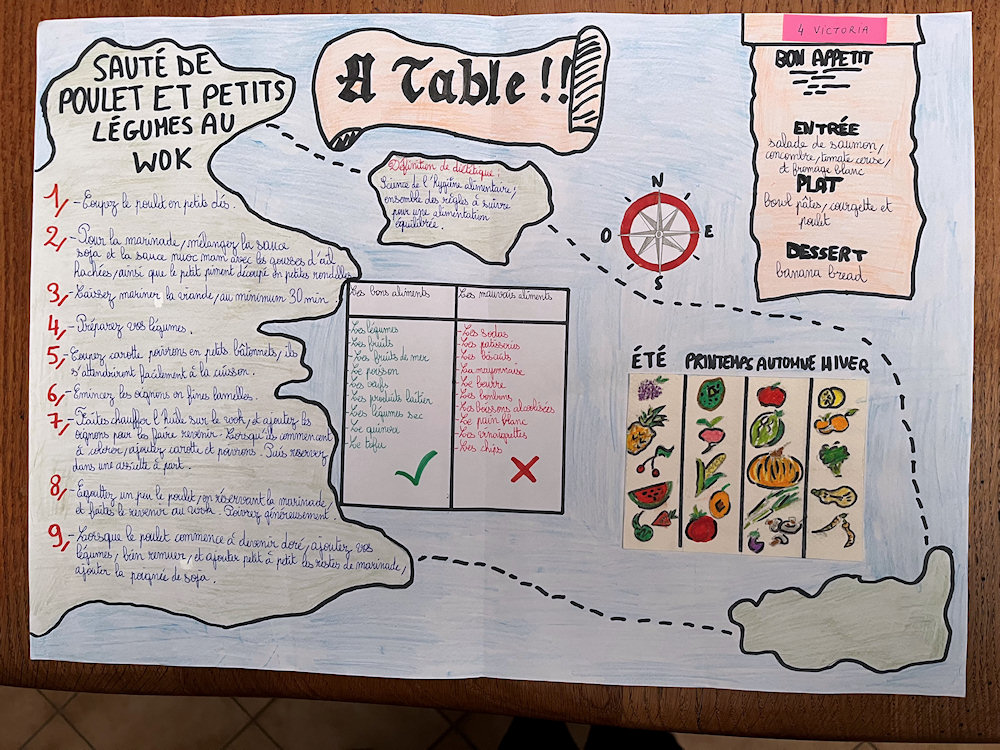 SAUTÉ DE
POULET ET PETITS
LÉGUMES AU
WOK
1,- Coupez le poulet en petits dés.
2,- Pour la marinade, mélangez la sauce
soja et la sauce nuoc mam avec les gousses d'ail
hachées, ainsi que le petit piment découpé en petites rondelles
3,- Laissez mariner la viande, au minimum 30 min
4,- Préparez vos légumes.
5,- Coupez carotte poivrons en petits bâtonnets, ils
s'attendriront facilement à la cuisson.
6,- Emincez les oignons en fines lamelles.
7,- Faites chauffer l'huile sur le wok, et ajoutez les
oignons pour les faire revenir. Lorsqu'ils commencent
à colorer, ajoutez carotte et poivrons. Puis reservez
dans une assiette à part.
8,- Egouttez un peu le poulet, en réservant la marinade,
et faites le revenir au wok. Poivrez généreusement.
9,- Lorsque le poulet commence à devenir doré, ajoutez vos
légumes, bien remuer, et ajouter petit à petit les restes de marinade,
ajouter la poignée de soja.
A Table !!
Définition de diététique :
Science de l'hygiène alimentaire,
ensemble des règles à suivre
pour une alimentation
équilibrée.
Les bons aliments
Les légumes
Les fruits
Les fruits de mer
Le poisson
Les oeufs
Les produits laitier
Les légumes sec
Le quinoa
Le tofu
Les mauvais aliments
- Les sodas
- Les patisseries
- Les biscuits
- La mayonnaise
- Le beurre
- Les bonbons
- Les boissons alcoolisées
- Le pain blanc
- Les vinaigrettes
- Les chips
N
O
E
S
4 VICTORIA
BON APPETIT
ENTRÉE
salade de saumon,
concombre, tomate cerise,
et fromage blanc
PLAT
bowl pâtes, courgette et
poulet
DESSERT
banana bread
ÉTÉ PRINTEMPS AUTOMNE HIVER